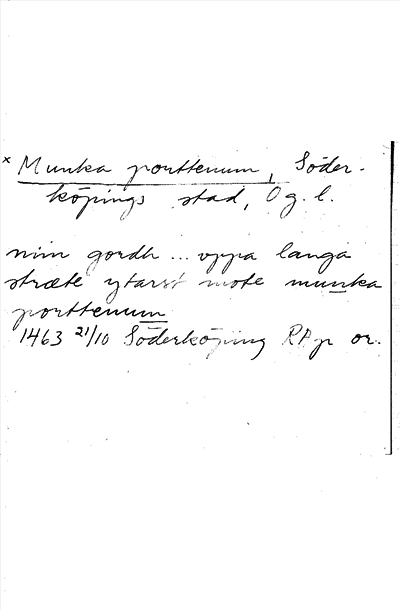 x Munka porttenum, Söder-
köpings stad, Ög. l.
min gordh ... vppa langa
stræte ytarst mote munka
porttenum
1463 21/10 Söderköping RAp or.